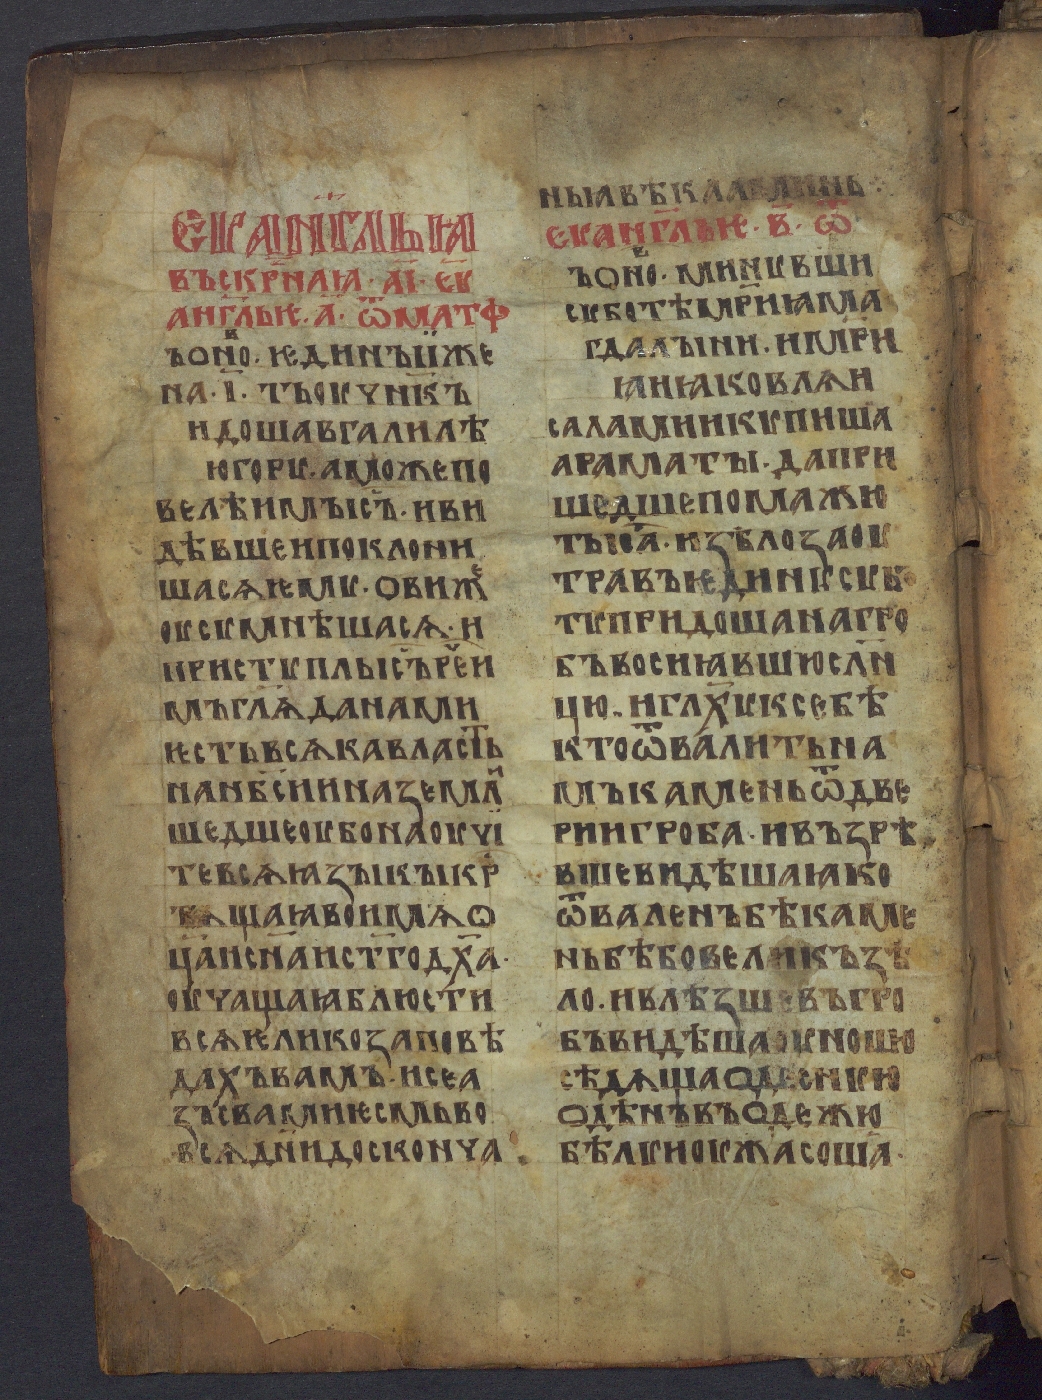 ЄѴАНГЛЬꙖ
ВЪСКРНАꙖ · АІ · ЄѴ
АНГЛЬѤ · А · ѾМАТФ
ЪОНО · ѤДИНЪЇИЖЕ
НА · І · ТЪОУЧНКЪ
ИДОШАВГАЛИЛѢ
ЮГОРУ · АМОЖЕПО
ВЕЛѢИМЪІСЪ · ИВИ
ДѢВШЕИПОКЛОНИ
ШАСѦѤМУ · ОВИЖЕ
ОУСУМНѢШАСѦ · И
ПРИСТУПЛЬІСЪРЕЧИ
МЪГЛѦДАНАМИ
ѤСТЬВСѦКАВЛАСТЬ
НАНБСИИНАЗЕМЛИ
ШЕДШЕОУБОНАОУЧІ
ТЕВСѦꙖЗЪІКЪІКР
ТѦЩАꙖВОИМѦО
ЦАИСНАИСТГОДХА ·
ОУЧАЩАꙖБЛЮСТИ
ВСѦѤЛИКОЗАПОВѢ
ДАХЪВАМЪ · ИСЕА
ЗЪСВАМИѤСМЬВО
ВСѦДНИДОСКОНЧА
НЬꙖВѢКААМИНЬ ·
ЄѴАНГЛЬѤ · В · Ѿ
ЪОНО · МИНУВШИ
СУБОТѢМРИꙖМА
ГДАЛЪІНИ · ИМРИ
ꙖИꙖКОВЛѦИ
САЛАМИИКУПИША
АРАМАТЪІ · ДАПРИ
ШЕДШЕПОМАЖЮ
ТЬІСА · ИЗѢЛОЗАОУ
ТРАВЪѤДИНУСУБО
ТУПРИДОШАНАГРО
БЪВОСИꙖВШЮСЛН
ЦЮ · ИГЛХУКСЕБѢ
КТОѾВАЛИТЬНА
МЪКАМЕНЬѾДВЕ
РИИГРОБА · ИВЪЗРѢ
ВШЕВИДѢШАꙖКО
ѾВАЛЕНЪБѢКАМЕ
НЬБѢБОВЕЛИКЪЗѢ
ЛО · ИВЛѢЗШЕВЪГРО
БЪВИДѢШАОУНОШЮ
СѢДѦЩАОДЕСНУЮ
ОДѢНЪВЪОДЕЖЮ
БѢЛУИОУЖАСОША ·